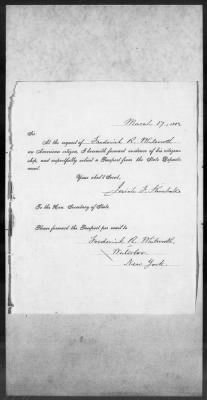 March 17, 1882
Sir
At the request of Frederick R.
an American citizen, I herewith forward evidence of his citizen-
ship, and respectfully solicit a Passport from the State Depart-
ment.
Your obd't Serv't,
To the Hon. Secretary of State.
Please forward the Passport per mail to
Frederick R.
Waterloo
New York